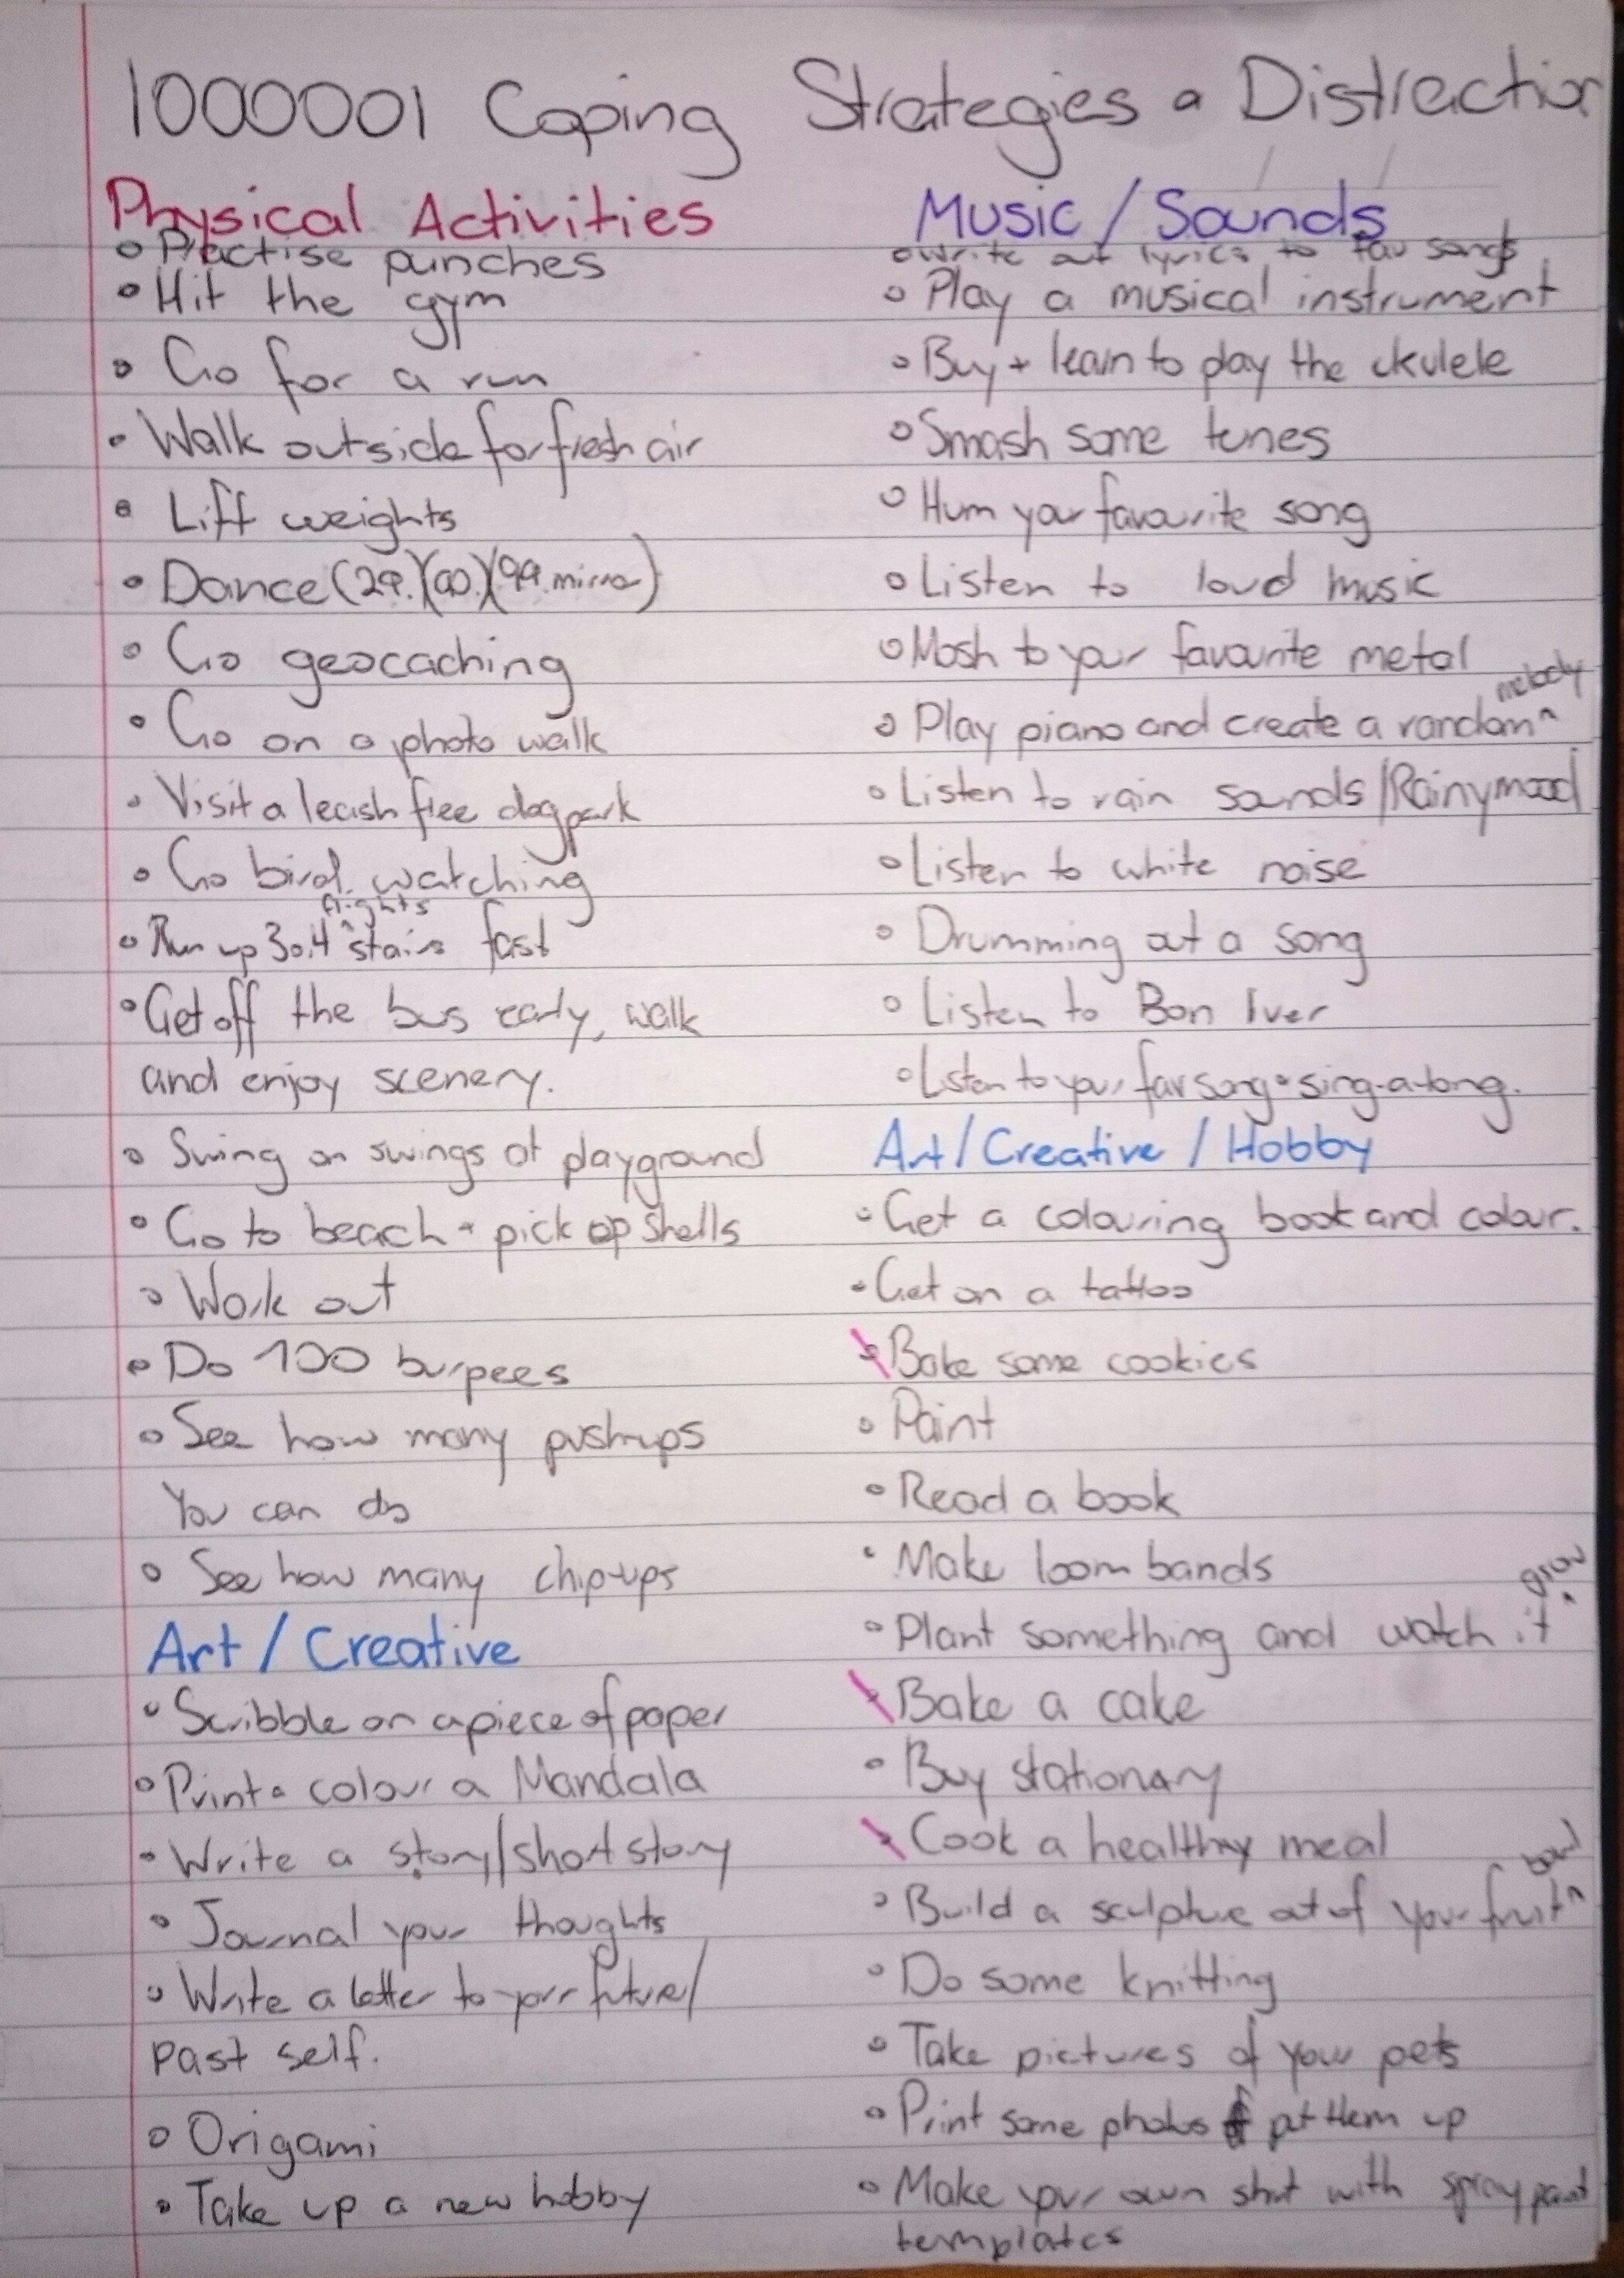 1000001 Coping Strategies & Distraction
Physical Activities
Practise punches
Hit the gym
Go for a run
Walk outside for fresh air
Lift weights
Dance
Go geocaching
Go on a photo walk
Visit a leash free dog park
Go bird watching
Run up 3 or 4 flights stairs fast
Get off the bus early, walk
and enjoy scenery.
Swing on swings at playground
Go to beach + pick up shells
Work out
Do 100 burpees
See how many pushups
You can do
See how many chip-ups
Art / Creative
Scribble on a piece of paper
Print & colour a Mandala
Write a story/short story
Journal your thoughts
Write a letter to your future/
past self.
Origami
Take up a new hobby
Music / Sounds
Write out lyrics to fav songs
Play a musical instrument
Buy + learn to play the ukulele
Smash some tunes
Hum your favourite song
Listen to loud music
Mosh to your favourite metal
Play piano and create a random melody
Listen to rain sounds/Rainymood
Listen to white noise
Drumming out a song
Listen to Bon Iver
Listen to your fav song & sing-a-long.
Art / Creative / Hobby
Get a colouring book and colour.
Get on a tattoo
Bake some cookies
Paint
Read a book
Make loom bands
Plant something and watch it grow
Bake a cake
Buy stationary
Cook a healthy meal
Build a sculpture out of your fruit bowl
Do some knitting
Take pictures of your pets
Print some photos put them up
Make your own shirt with spray paint
templates